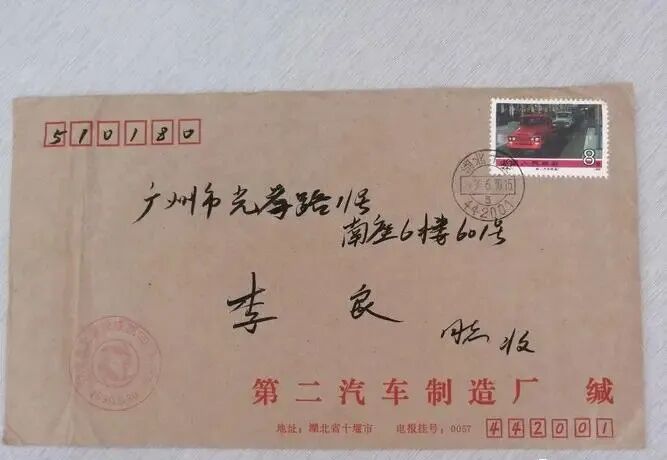 510180
8
湖北十堰
442001
广州市光孝路11号
南座6楼601号
李良
同志 收
1990.6.30
第二汽车制造厂 缄
地址：湖北省十堰市 电报挂号：0057 442001